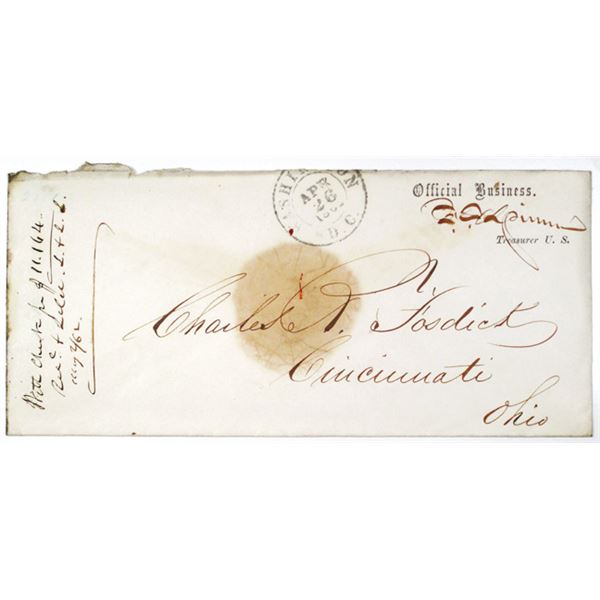 WASHINGTON
APR
26
D.C.
Official Business.
F. E. Spinner
Treasurer U. S.
Charles R. Fosdick
Cincinnati
Ohio
With Check for $ 11.164
Rec'd &